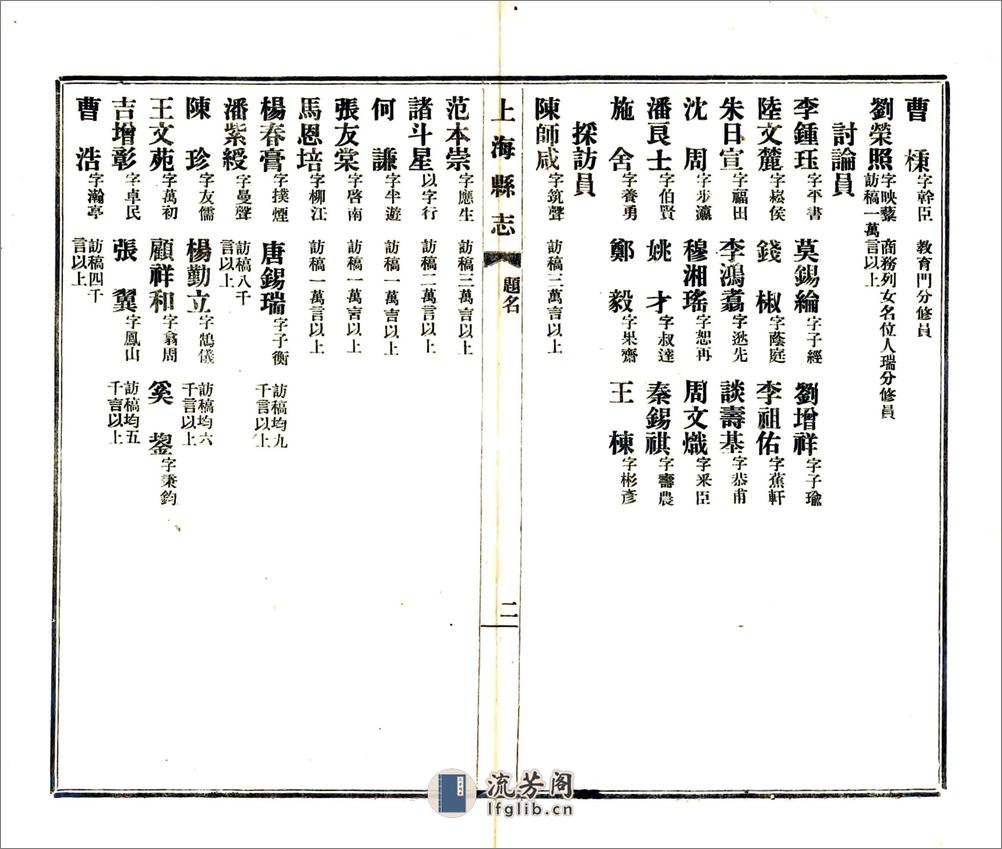 曹　棟字幹臣　教育門分修員
劉榮照字映藜　商務列女名位人瑞分修員
訪稿一萬言以上
討論員
李鍾珏字平書　莫錫綸字子經　劉增祥字子瑜
陸文麓字崧侯　錢　椒字蔭庭　李祖佑字蕉軒
朱日宣字福田　李鴻翥字逖先　談壽基字恭甫
沈　周字步瀛　穆湘瑤字恕再　周文熾字釆臣
潘良士字伯賢　姚　才字叔達　秦錫祺字壽農
施　舍字養勇　鄭　毅字果齋　王　棟字彬彥
採訪員
陳師咸字筑聲　訪稿三萬言以上
上海縣志　題名　二
范本崇字應生　訪稿三萬言以上
諸斗星以字行　訪稿二萬言以上
何　謙字半遊　訪稿一萬言以上
張友棠字啓南　訪稿一萬言以上
馬恩培字柳江　訪稿一萬言以上
楊春膏字撲煙　唐錫瑞字子衡　訪稿均九千言以上
潘紫綬字曼聲　訪稿八千言以上
陳　珍字友儒　楊勤立字鵠儀　訪稿均六千言以上
王文苑字萬初　顧祥和字翕周　奚　鋆字秉鈞
吉增彰字卓民　張　翼字鳳山　訪稿均五千言以上
曹　浩字瀚亭　訪稿四千言以上
流芳阁
lfglib.cn